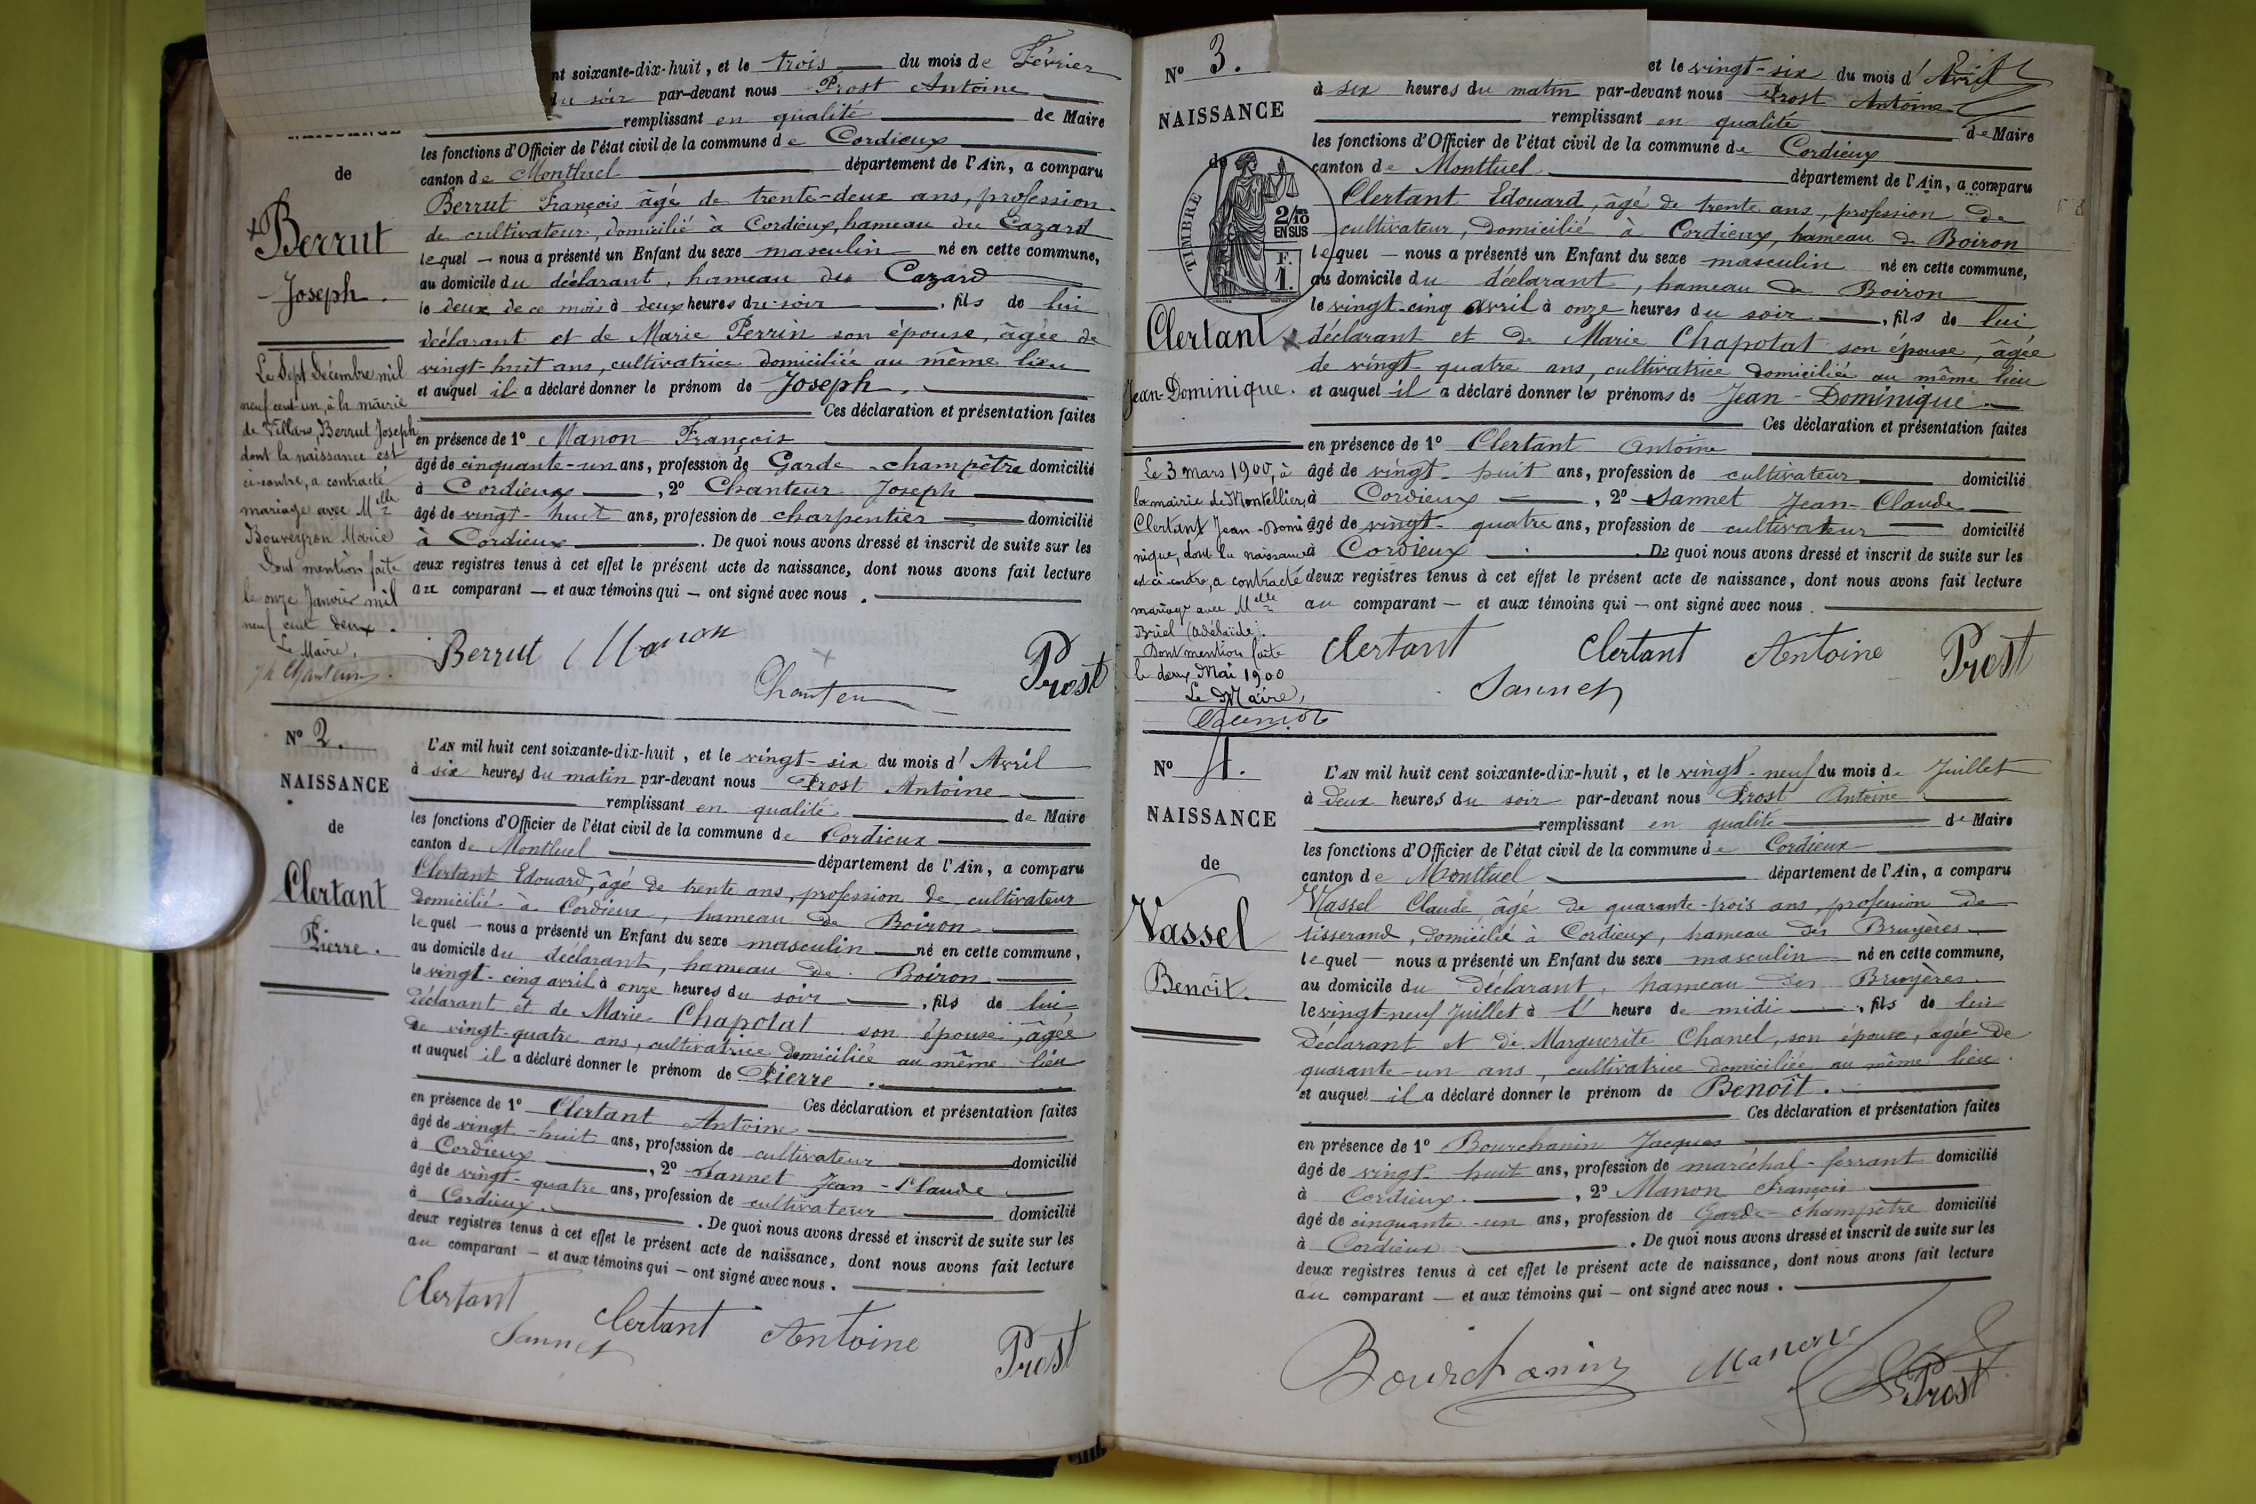 nt soixante-dix-huit, et le trois du mois de Février
du soir par-devant nous Prost Antoine
remplissant en qualité de Maire
les fonctions d'Officier de l'état civil de la commune de Cordieux
canton de Montluel département de l'Ain, a comparu
de
Berrut
Joseph.
Berrut François âgé de trente-deux ans, profession
de cultivateur, domicilié à Cordieux, hameau du Cazard
lequel — nous a présenté un Enfant du sexe masculin né en cette commune,
au domicile du déclarant, hameau du Cazard
le deux de ce mois à deux heures du soir, fils de lui
déclarant et de Marie Perrin son épouse, âgée de
vingt-huit ans, cultivatrice domiciliée au même lieu
et auquel il a déclaré donner le prénom de Joseph.
Ces déclaration et présentation faites
en présence de 1º Manon François
âgé de cinquante-un ans, profession de Garde-champêtre domicilié
à Cordieux, 2º Chanteur Joseph
âgé de vingt-huit ans, profession de charpentier domicilié
à Cordieux. De quoi nous avons dressé et inscrit de suite sur les
deux registres tenus à cet effet le présent acte de naissance, dont nous avons fait lecture
au comparant — et aux témoins qui — ont signé avec nous.
Le Sept Décembre mil
neuf cent un, à la mairie
de Villars, Berrut Joseph
dont la naissance est
ci-contre, a contracté
mariage avec Melle
Bouveyron Marie
Dont mention faite
le onze Janvier mil
neuf cent deux.
Le Maire,
Berrut Manon
Chanteur Prost
Nº 2.
NAISSANCE
de
Clertant
Pierre.
L'AN mil huit cent soixante-dix-huit, et le vingt-six du mois d'Avril
à six heures du matin par-devant nous Prost Antoine
remplissant en qualité de Maire
les fonctions d'Officier de l'état civil de la commune de Cordieux
canton de Montluel département de l'Ain, a comparu
Clertant Edouard, âgé de trente ans, profession de cultivateur
domicilié à Cordieux, hameau de Boiron
lequel — nous a présenté un Enfant du sexe masculin né en cette commune,
au domicile du déclarant, hameau de Boiron
le vingt-cinq avril à onze heures du soir, fils de lui
déclarant et de Marie Chapolat son épouse, âgée
de vingt-quatre ans, cultivatrice domiciliée au même lieu
et auquel il a déclaré donner le prénom de Pierre.
Ces déclaration et présentation faites
en présence de 1º Clertant Antoine
âgé de vingt-huit ans, profession de cultivateur domicilié
à Cordieux, 2º Sannet Jean-Claude
âgé de vingt-quatre ans, profession de cultivateur domicilié
à Cordieux. De quoi nous avons dressé et inscrit de suite sur les
deux registres tenus à cet effet le présent acte de naissance, dont nous avons fait lecture
au comparant — et aux témoins qui — ont signé avec nous.
Clertant Clertant Antoine
Sannet Prost
Nº 3.
NAISSANCE
de
TIMBRE
2/10
EN SUS
F.
1.
Clertant
Jean-Dominique.
et le vingt-six du mois d'Avril
à six heures du matin par-devant nous Prost Antoine
remplissant en qualité de Maire
les fonctions d'Officier de l'état civil de la commune de Cordieux
canton de Montluel département de l'Ain, a comparu
Clertant Edouard, âgé de trente ans, profession de
cultivateur, domicilié à Cordieux, hameau de Boiron
lequel — nous a présenté un Enfant du sexe masculin né en cette commune,
au domicile du déclarant, hameau de Boiron
le vingt-cinq avril à onze heures du soir, fils de lui
déclarant et de Marie Chapolat son épouse, âgée
de vingt-quatre ans, cultivatrice domiciliée au même lieu
et auquel il a déclaré donner les prénoms de Jean-Dominique.
Ces déclaration et présentation faites
en présence de 1º Clertant Antoine
âgé de vingt-huit ans, profession de cultivateur domicilié
à Cordieux, 2º Sannet Jean-Claude
âgé de vingt-quatre ans, profession de cultivateur domicilié
à Cordieux. De quoi nous avons dressé et inscrit de suite sur les
deux registres tenus à cet effet le présent acte de naissance, dont nous avons fait lecture
au comparant — et aux témoins qui — ont signé avec nous.
Le 3 mars 1900, à
la mairie de Montellier,
Clertant Jean-Domi
nique, dont la naissance
est ci-contre, a contracté
mariage avec Melle
Briel (Adélaïde).
Dont mention faite
le deux Mai 1900
Le Maire,
Clertant Clertant Antoine
Sannet Prost
Nº 4.
NAISSANCE
de
Vassel
Benoît.
L'AN mil huit cent soixante-dix-huit, et le vingt-neuf du mois de Juillet
à deux heures du soir par-devant nous Prost Antoine
remplissant en qualité de Maire
les fonctions d'Officier de l'état civil de la commune de Cordieux
canton de Montluel département de l'Ain, a comparu
Vassel Claude, âgé de quarante-trois ans, profession de
tisserand, domicilié à Cordieux, hameau des Bruyères
lequel — nous a présenté un Enfant du sexe masculin né en cette commune,
au domicile du déclarant, hameau des Bruyères.
le vingt neuf Juillet à l' heure de midi, fils de lui
Déclarant et de Marguerite Chanel, son épouse, âgée de
quarante-un ans, cultivatrice domiciliée au même lieu.
et auquel il a déclaré donner le prénom de Benoît.
Ces déclaration et présentation faites
en présence de 1º Bourchanin Jacques
âgé de vingt-huit ans, profession de maréchal-ferrant domicilié
à Cordieux, 2º Manon François
âgé de cinquante-un ans, profession de Garde-champêtre domicilié
à Cordieux. De quoi nous avons dressé et inscrit de suite sur les
deux registres tenus à cet effet le présent acte de naissance, dont nous avons fait lecture
au comparant — et aux témoins qui — ont signé avec nous.
Bourchanin Manon
Prost